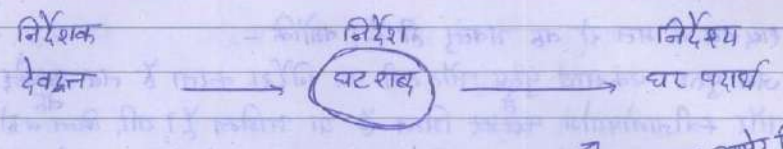 निर्देशक निर्देश निर्देश्य
देवदत्त घट शब्द घट पदार्थ